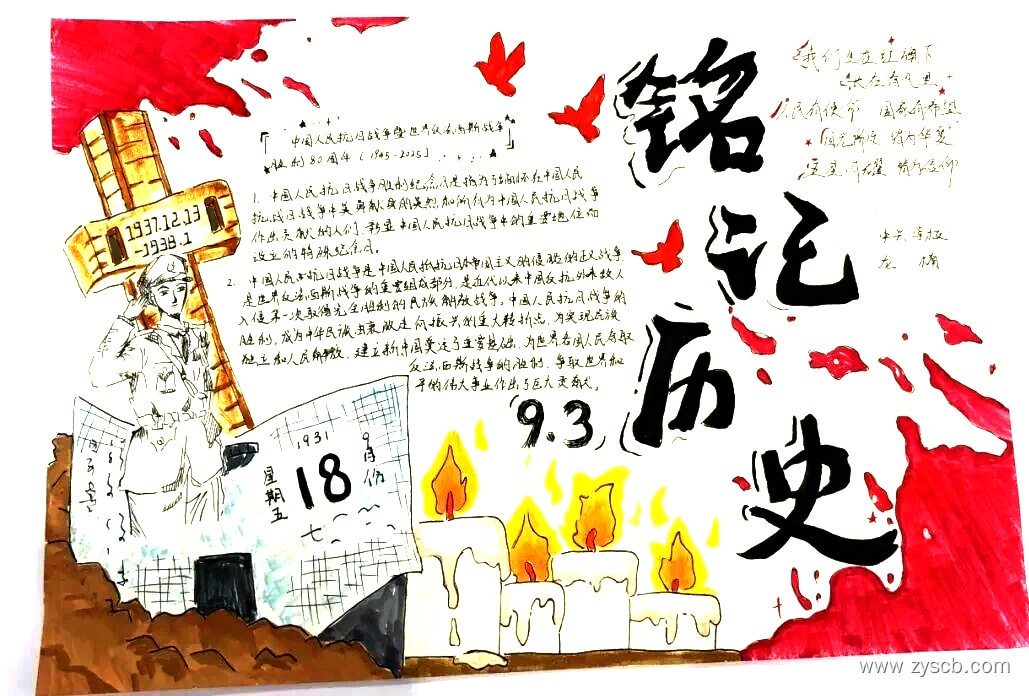 铭记历史
我们生在红旗下
长在春风里
人民有使命 国家有希望
目光所至 皆为华夏
五星闪耀 皆为信仰
『中国人民抗日战争暨世界反法西斯战争
胜利80周年〔1945-2025〕』
1. 中国人民抗日战争胜利纪念日是
抗战日战争中英勇献身的英烈和所有为中国人民抗日战争
作出贡献的人们,彰显中国人民抗日战争中的重要地位而
设立的特殊纪念日。
2. 中国人民抗日战争是中国人民抵抗日本帝国主义的侵略的正义战争
是世界反法西斯战争的重要组成部分,是近代以来中国反抗外来敌人
入侵第一次取得完全胜利的民族解放战争,中国人民抗日战争的
胜利,成为中华民族由衰败走向振兴的重大转折点,为实现民族
独立和人民解放,建立新中国奠定了重要基础,为世界各国人民夺取
反法西斯战争的胜利,争取世界和
平的伟大事业作出了巨大贡献。
1937.12.13
-1938.1
9.3
1931
9月份
18
星期五
七
www.zyscb.com